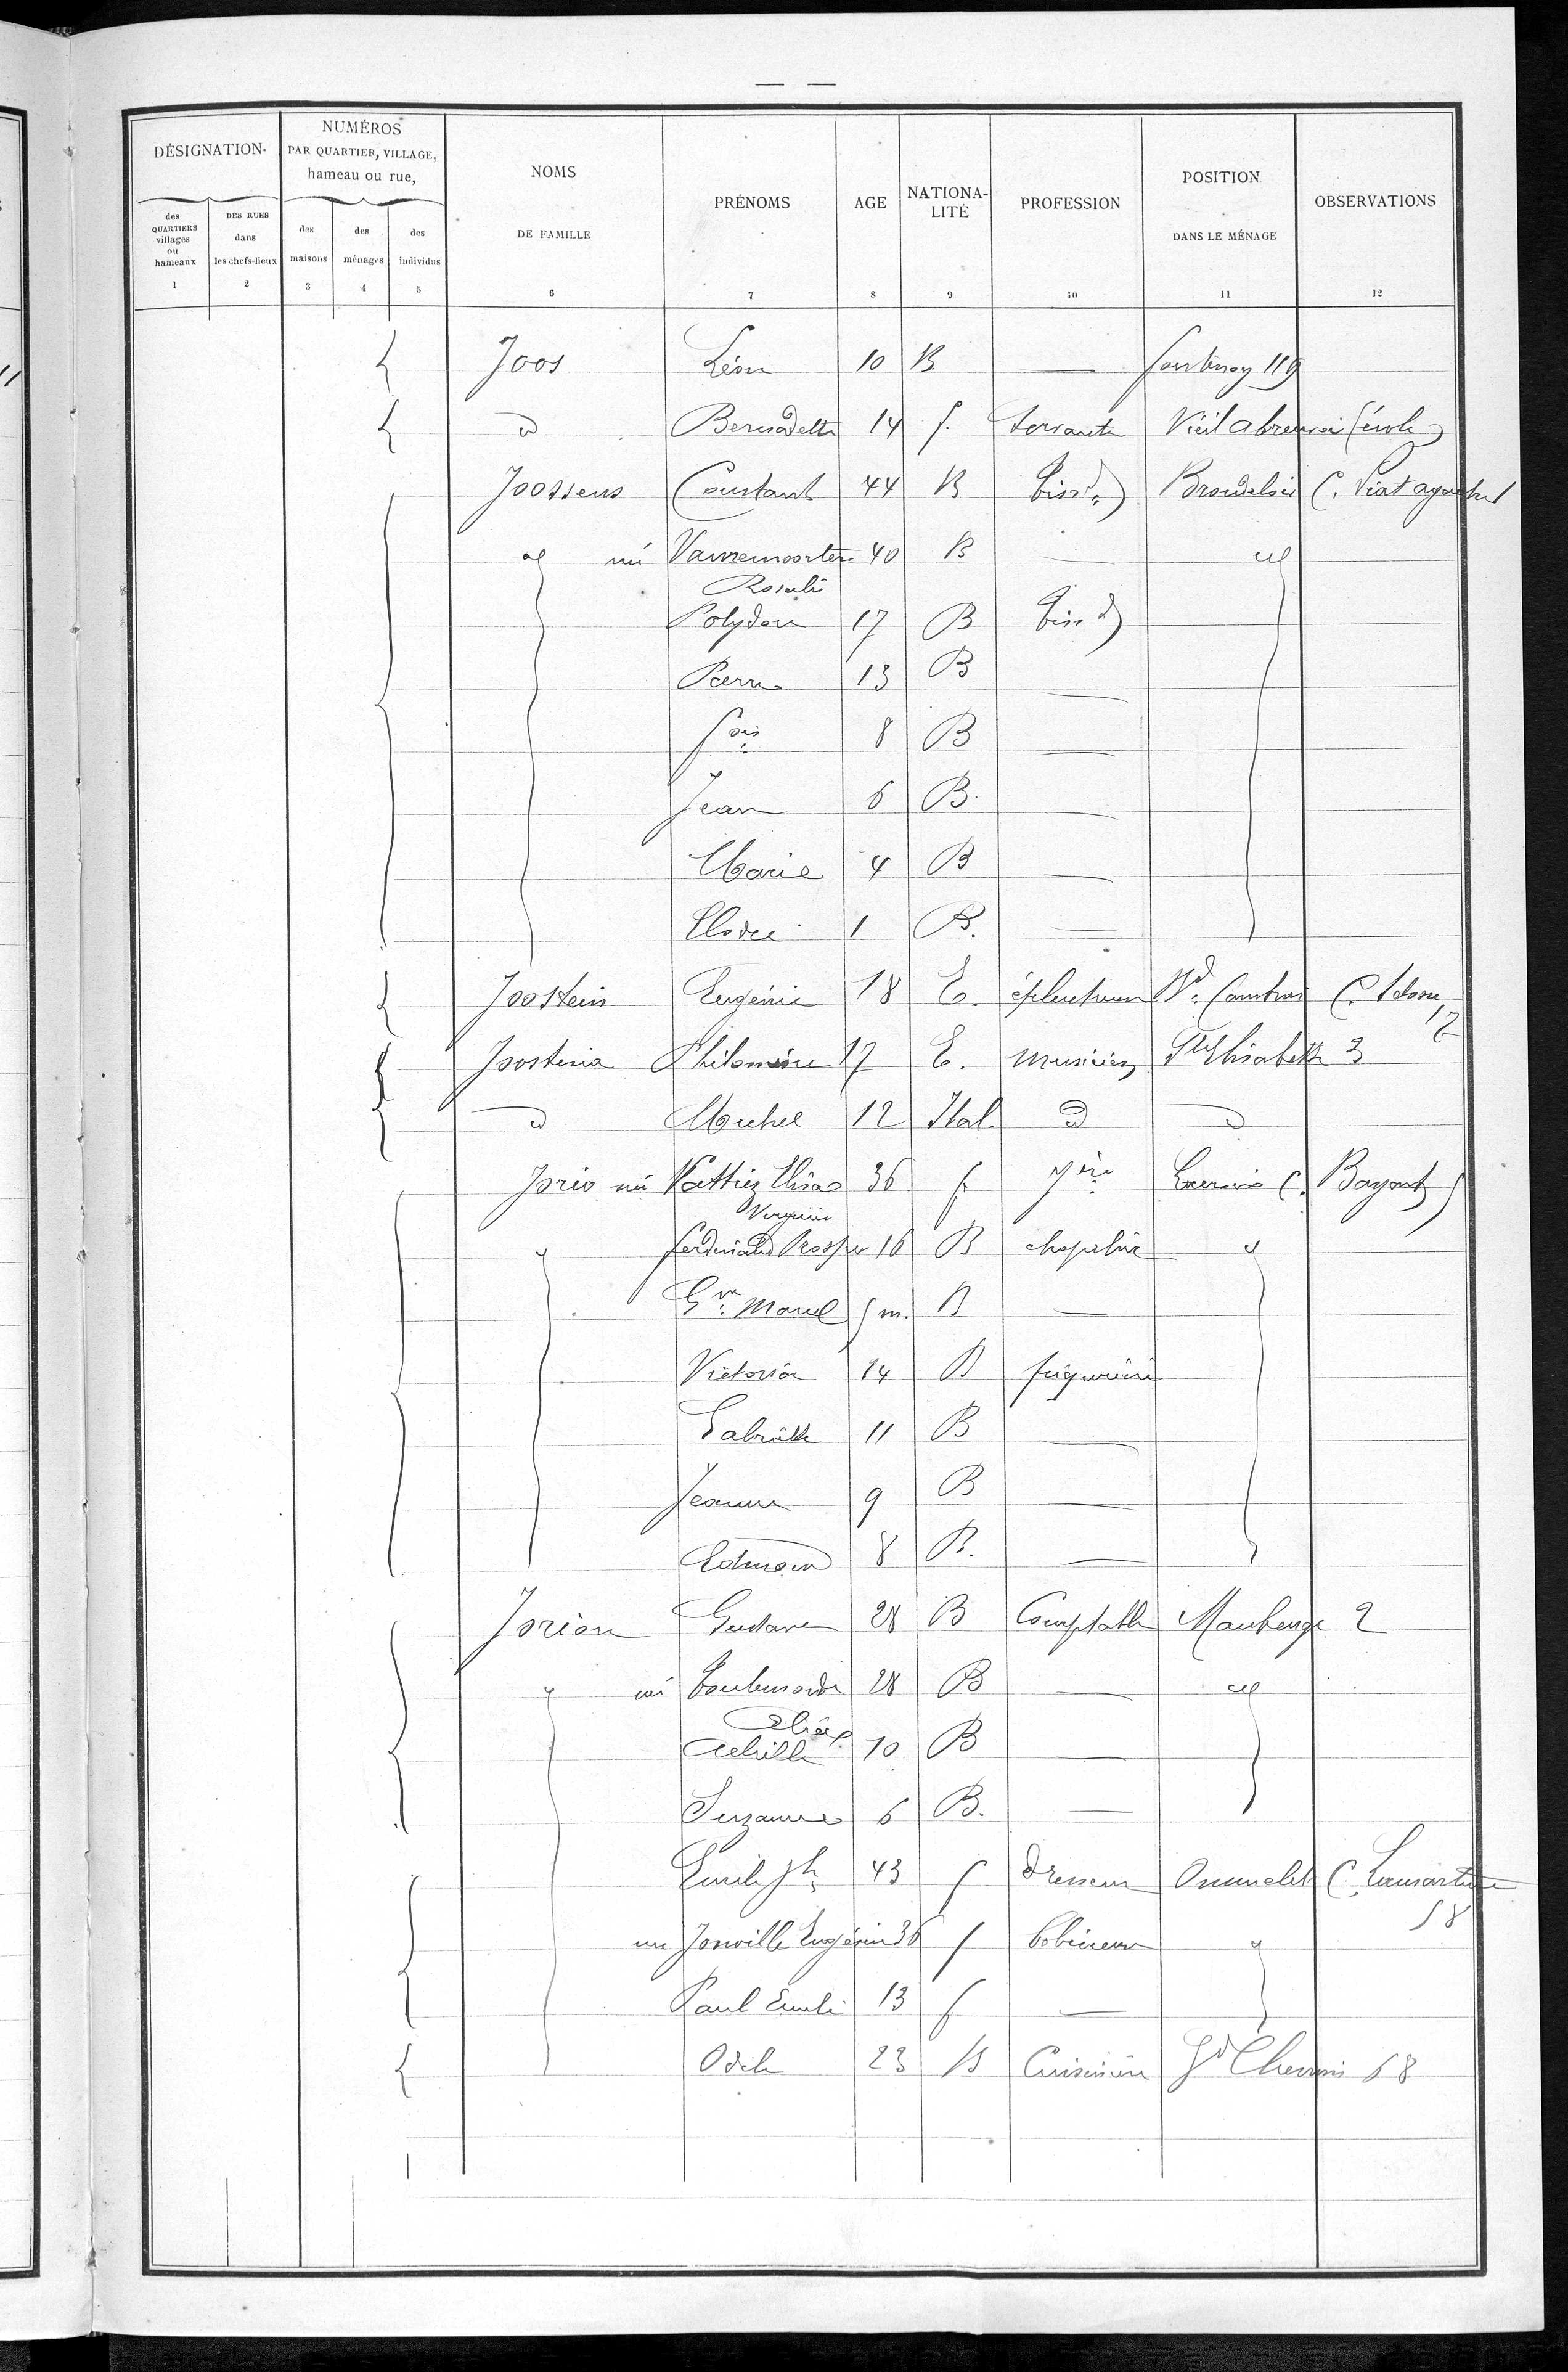 DÉSIGNATION.
NUMÉROS
PAR QUARTIER, VILLAGE,
hameau ou rue,
des QUARTIERS villages ou hameaux
DES RUES dans les chefs-lieux
des maisons
des ménages
des individus
NOMS DE FAMILLE
PRÉNOMS
AGE
NATIONA-LITÉ
PROFESSION
POSITION DANS LE MÉNAGE
OBSERVATIONS
1 2 3 4 5 6 7 8 9 10 11 12
Joos Léon 10 B — fontenoy 119
d Bernadette 14 f. servante Vieil abreuvoir (école)
Joossens Constant 44 B tissd Brondeloir C. Piat
née 40 B —
Rosalie
Polydore 17 B tissd
Pierre 13 B —
fois 8 B —
Jean 6 B —
Marie 4 B —
Elodie 1 B. —
Joostens Eugénie 18 E. Bd. Cambrai C.
12
Philomène 17 E. musicien Ste Elisabeth 3
d Michel 12 Ital. d d
Jorio née Wattiez Elisa 36 f Mère C. Bayart 5
Virginie
ferdinand Prosper 16 B
Marcel 5 m. B —
Victoria 14 B
Gabrielle 11 B —
Jeanne 9 B —
Edmond 8 B. —
Jorion Gustave 28 B Comptable Maubeuge 2
née 28 B —
Achille 10 B —
Suzanne 6 B. —
Emile Jh 43 f dresseur C.
58
née Jonville Eugénie 36 f bobineuse
Paul Emile 13 f —
Odile 23 B Cuisinière Gd Chemin 68